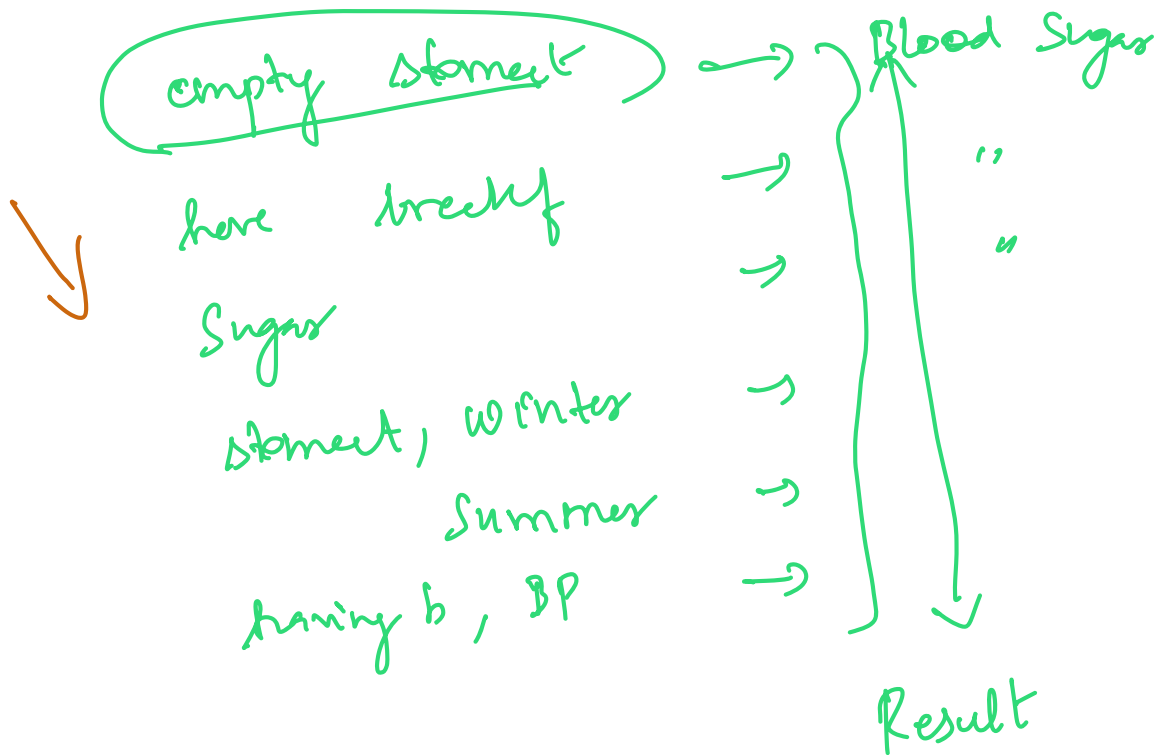 empty stomect Blood Sugar
have breakf "
"
Sugar
stomect, winter
Summer
having b, BP
Result